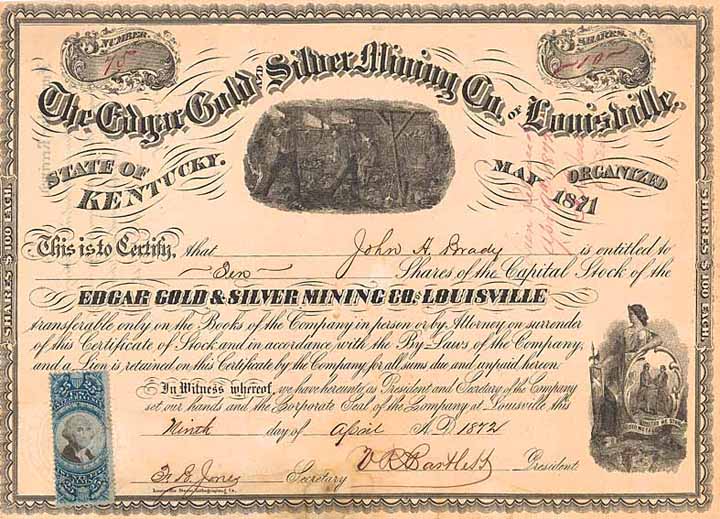 NUMBER.
75
SHARES.
10
The Edgar Gold AND Silver Mining Co. OF Louisville.
STATE OF
KENTUCKY.
MAY ORGANIZED
1871
SHARES $100 EACH.
SHARES $100 EACH.
This is to Certify, that John A. Brady is entitled to
Ten Shares of the Capital Stock of the
EDGAR GOLD & SILVER MINING CO. OF LOUISVILLE
transferable only on the Books of the Company in person or by Attorney on surrender
of this Certificate of Stock and in accordance with the By-Laws of the Company;
and a Lien is retained on this Certificate by the Company for all sums due and unpaid hereon.
In Witness whereof, we have hereunto, as President and Secretary of the Company
set our hands and the Corporate Seal of the Company at Louisville, this
Ninth day of April A.D. 1872
Secretary
V R Bartlett President
UNITED WE STAND